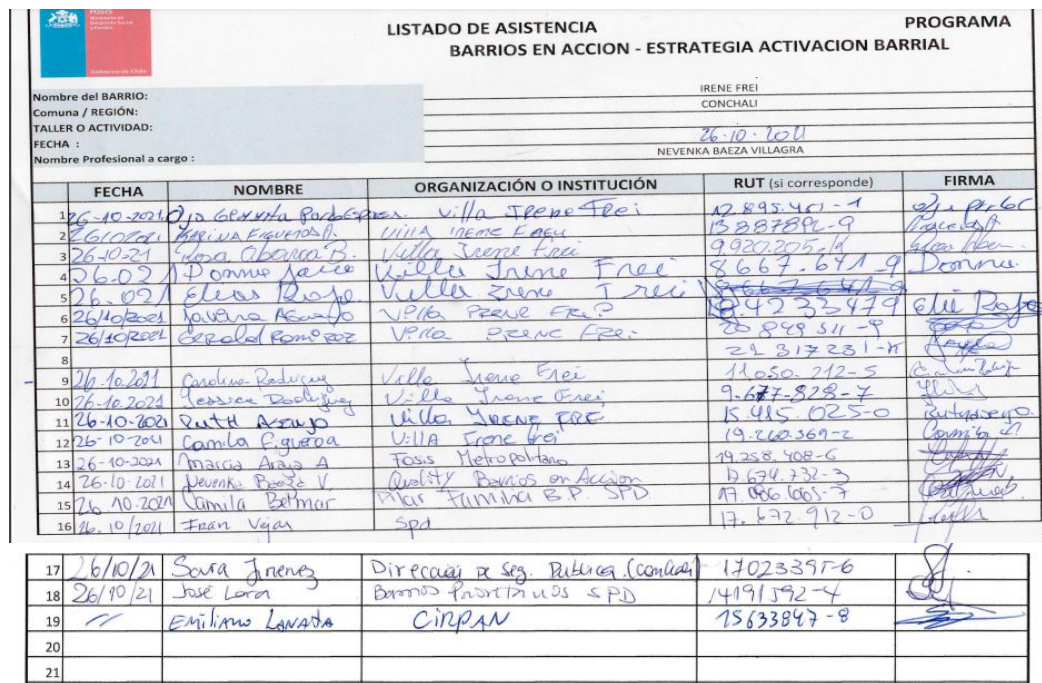 FOSIS
Ministerio de
Desarrollo Social
y Familia
Gobierno de Chile
LISTADO DE ASISTENCIA PROGRAMA
BARRIOS EN ACCION - ESTRATEGIA ACTIVACION BARRIAL
Nombre del BARRIO: IRENE FREI
Comuna / REGIÓN: CONCHALI
TALLER O ACTIVIDAD:
FECHA : 26-10-2021
Nombre Profesional a cargo : NEVENKA BAEZA VILLAGRA
FECHA NOMBRE ORGANIZACIÓN O INSTITUCIÓN RUT (si corresponde) FIRMA
1 26-10-2021 Villa Irene Frei 12.895.451-1
2 26/10/2021 KARINA FIGUEROA Villa IRENE FREI
3 26-10-21 Rosa Abarca B. Villa Irene Frei 9.920.205-K
4 26.021 Villa Irene Frei 8667.641-9
5 26.021 Elias Rojo Villa Irene Frei
6 26/10/2021 Javiera Araujo
7 26/10/2021 Gerald Ramirez 20 849 511-9
8 21 317 231-K
9 26.10.2021 Carolina Rodriguez Villa Irene Frei 11.050.212-5
10 26-10.2021 Jessica Rodriguez Villa Irene Frei 9.677-828-7
11 26-10-2021 RUTH Araujo Villa IRENE FRE 15.415.025-0
12 26-10-2021 Camila Figueroa Villa Irene frei 19-260.369-2
13 26-10-2021 Marcia Araya A Fosis Metropolitano 19.258.408-6
14 26-10-2021 Nevenka Baeza V. Quality Barrios en Accion
15 26.10.2021 Camila Belmar Pilar Familia B.P. SPD
16 26.10/2021 Fran Vejar Spd 17.672.912-0
17 26/10/21 Sara Jimenez Direccion de Seg. Publica (Conchali) 17023395-6
18 26/10/21 José Lara Barrios Prioritarios SPD 14191592-4
19 " EMiliano LANATA CIRPAN 15633847-8
20
21